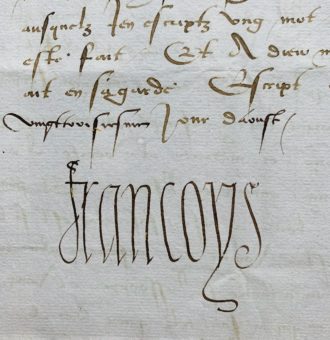 ausquelz Jen escriptz ung mot
este fait Et A dieu
ait en sa garde Escript
vingttroisiesme Jour daoust
Francoys